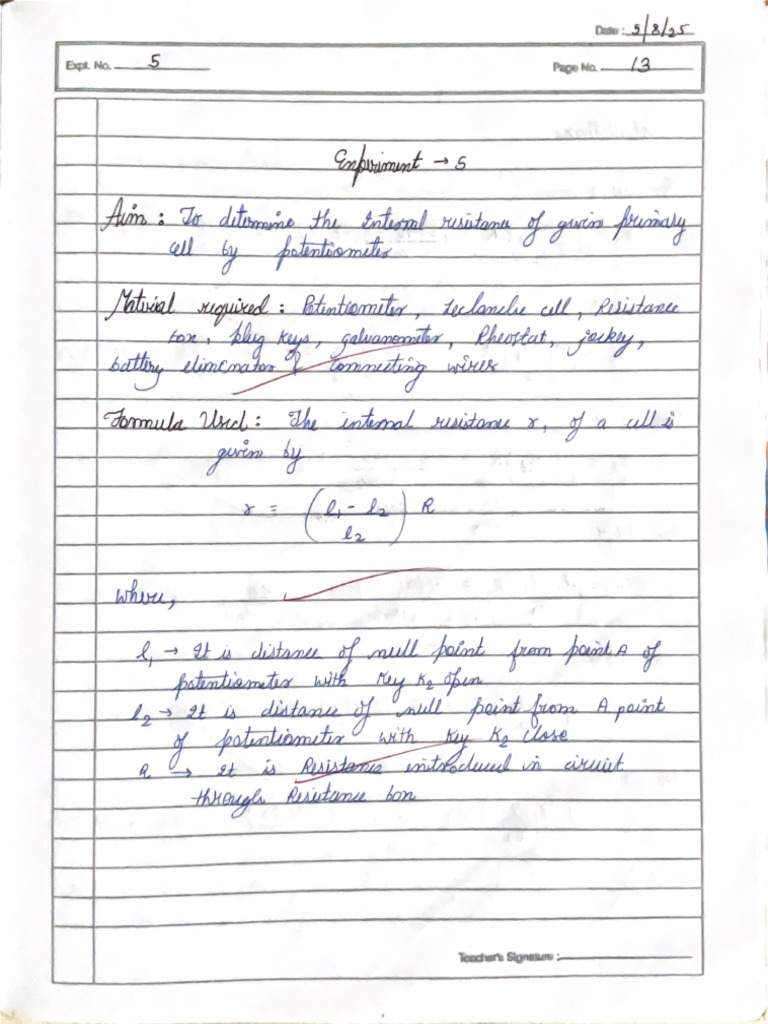 Date : 5/8/25
Expt. No. 5
Page No. 13
Experiment → 5
Aim : To ditermine the Internal resistance of given primary
cell by potentiometer
Material required : Potentiometer, Leclanche cell, Resistance
box, plug keys, galvanometer, Rheostat, jockey,
battery eliminator & connecting wires
Formula Used : The internal resistance r, of a cell is
given by
r = (l₁ - l₂ / l₂) R
where,
l₁ → It is distance of null point from point A of
potentiometer with key K₂ open
l₂ → It is distance of null point from A point
of potentiometer with key K₂ close
R → It is Resistance introduced in circuit
through Resistance box
Teacher's Signature :